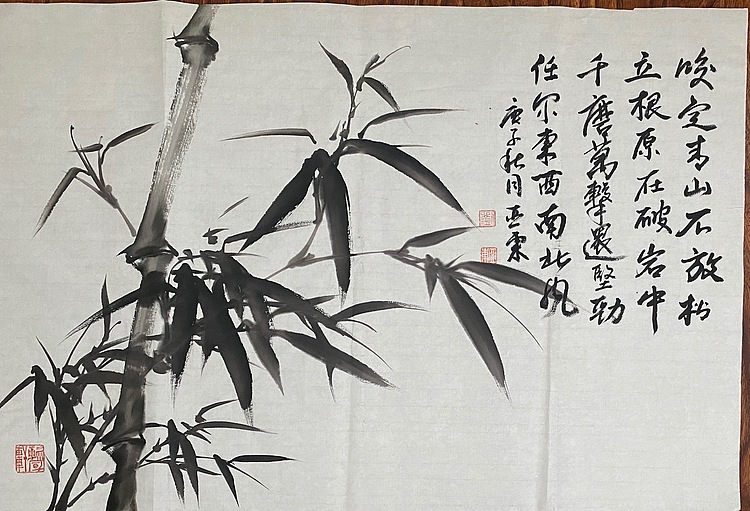 咬定青山不放松
立根原在破岩中
千磨萬擊還堅勁
任尔东西南北风
庚子秋月亚东